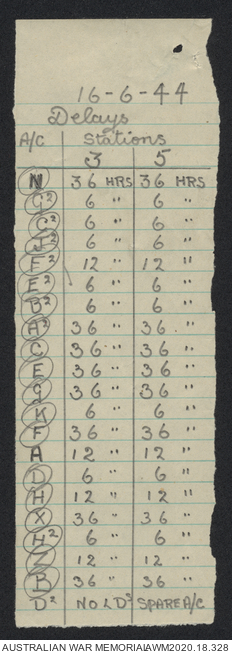 16-6-44
Delays
A/C Stations
3 5
N 36 HRS 36 HRS
G² 6 " 6 "
C² 6 " 6 "
J² 6 " 6 "
F² 12 " 12 "
E² 6 " 6 "
B² 6 " 6 "
A² 36 " 36 "
C 36 " 36 "
E 36 " 36 "
G 36 " 36 "
K 6 " 6 "
F 36 " 36 "
A 12 " 12 "
D 6 " 6 "
H 12 " 12 "
X 36 " 36 "
H² 6 " 6 "
12 " 12 "
B 36 " 36 "
D² NO LDˢ SPARE A/C
AUSTRALIAN WAR MEMORIAL AWM2020.18.328